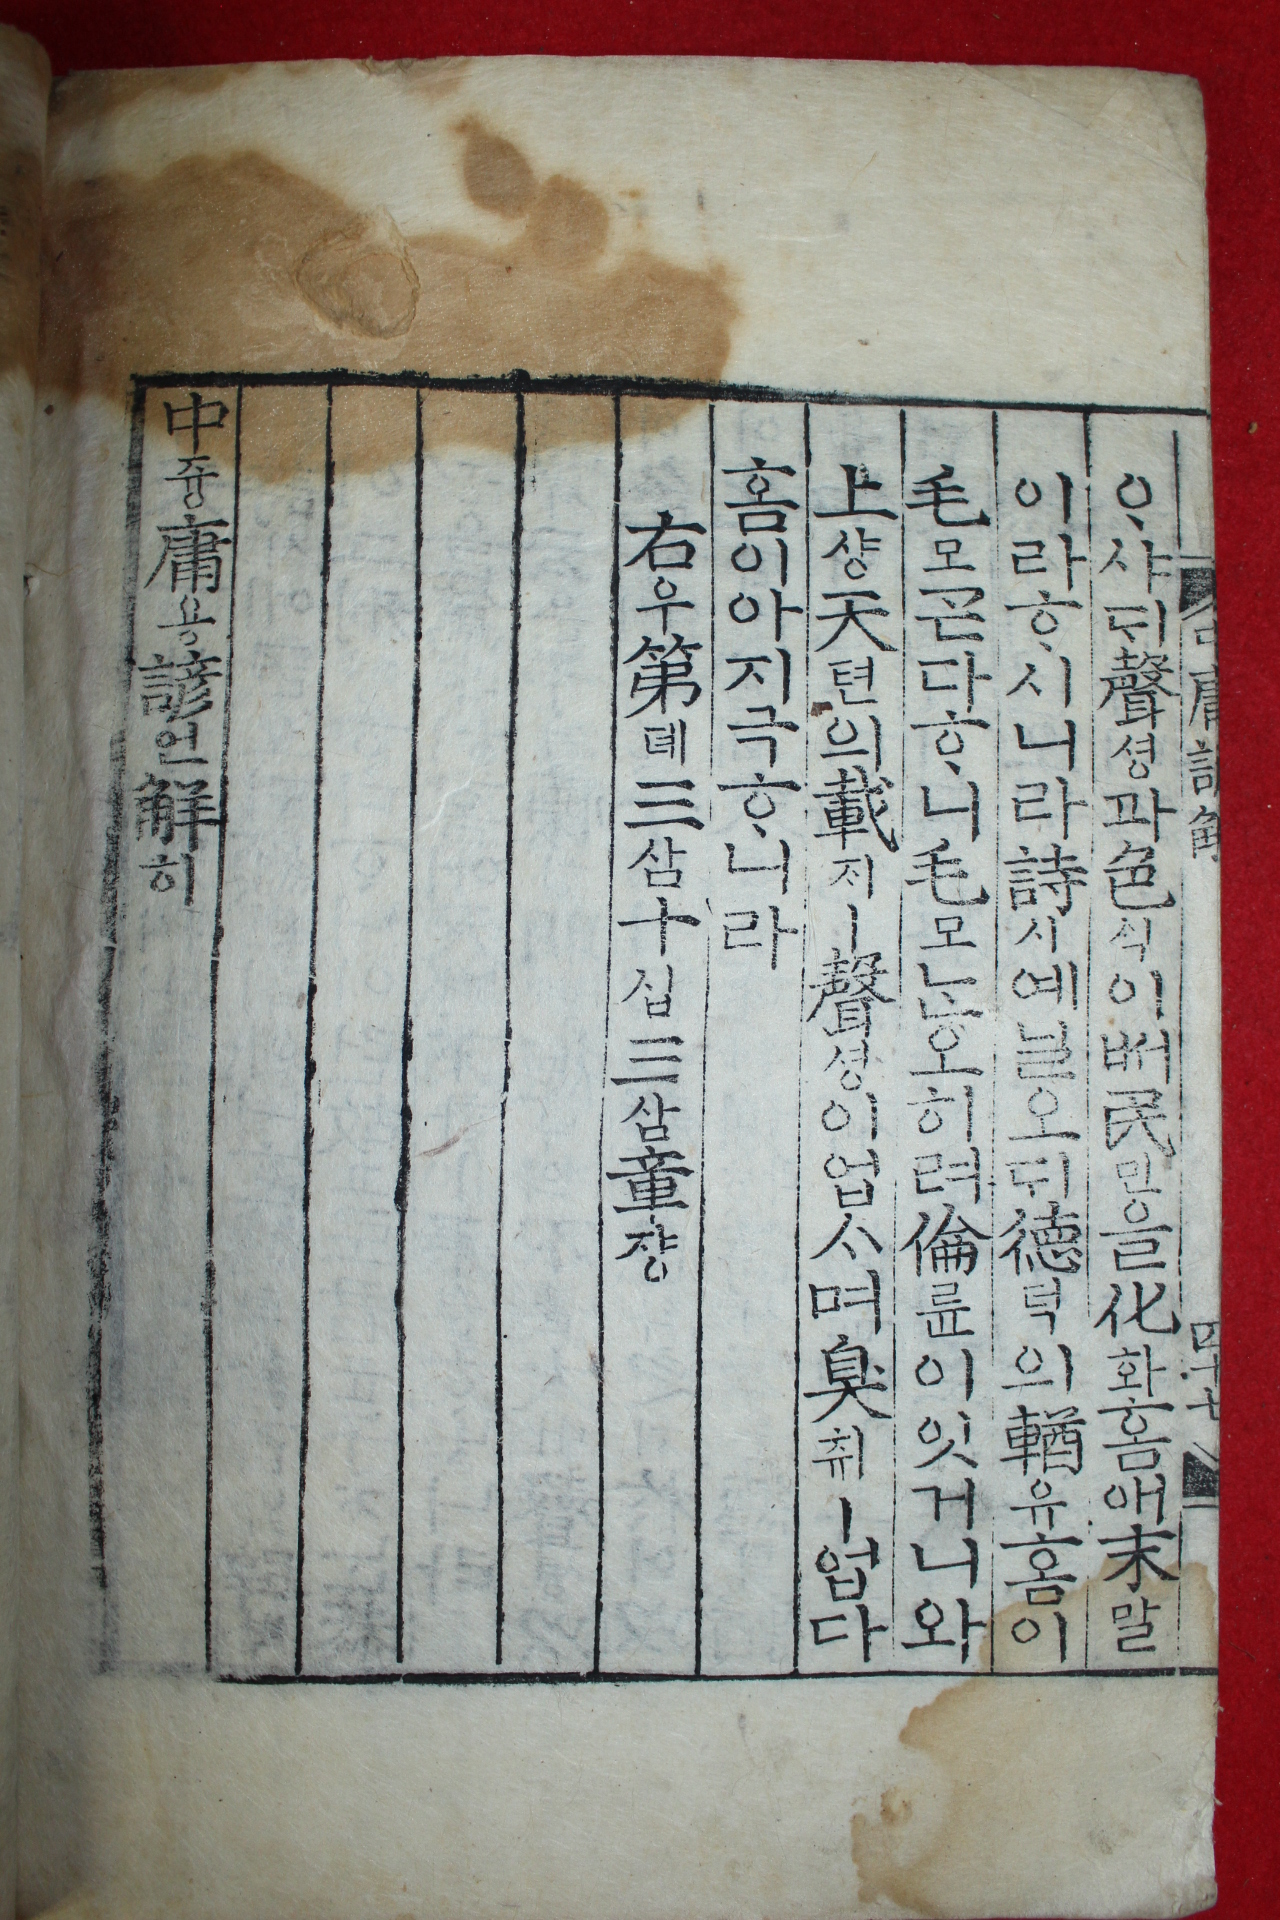 中庸諺解 四十七
ᄋᆞ샤ᄃᆡ聲셩과色ᄉᆡᆨ이ᄡᅥ民민을化화홈애末말
이라ᄒᆞ시니라詩시예ᄀᆞᆯ오ᄃᆡ德덕의輶유홈이
毛모ᄀᆞᆮ다ᄒᆞ니毛모ᄂᆞᆫ오히려倫륜이잇거니와
上샹天텬의載ᄌᆡㅣ聲셩이업스며臭취ㅣ업다
홈이아지극ᄒᆞ니라
右우第뎨三삼十십三삼章쟝
中즁庸용諺언解ᄒᆡ